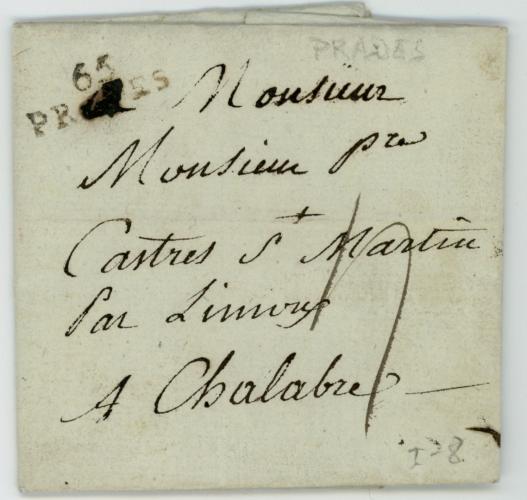 PRADES
65
PRADES
A Monsieur
Monsieur pre
Castres St Martin
Par Limoux
A Chalabre